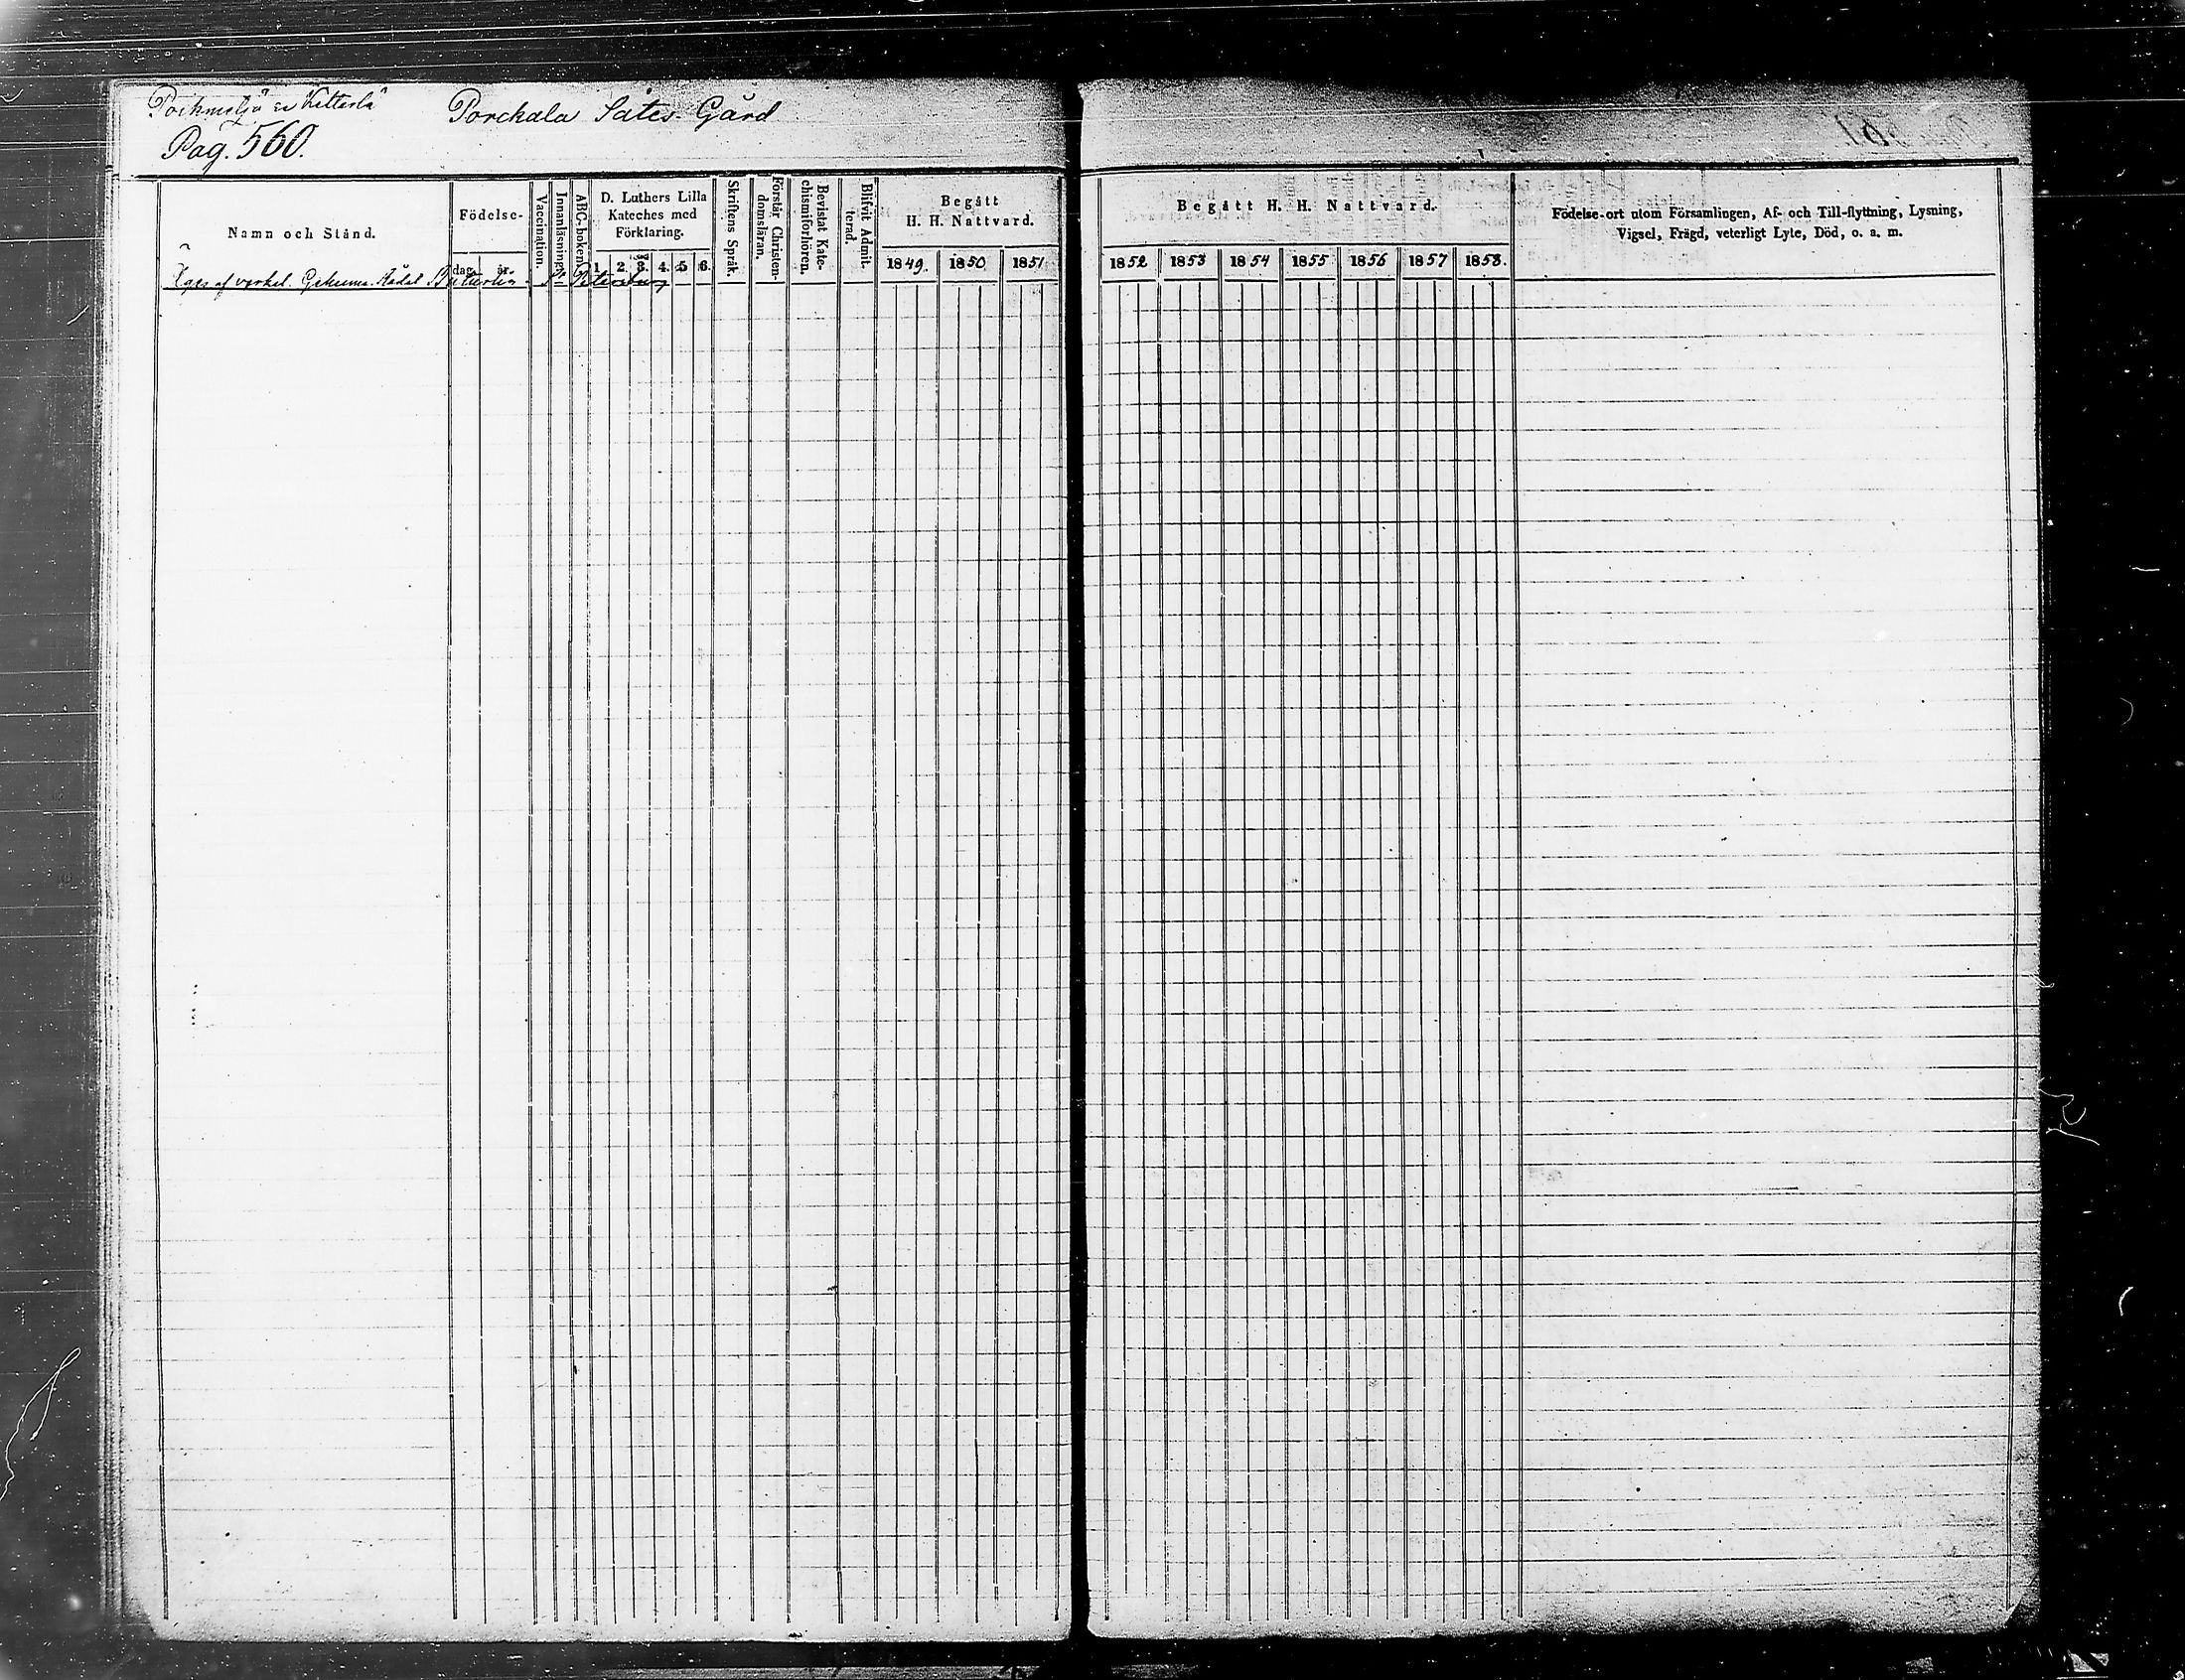 Porckala Sätes-Gård
Pag. 560.
Namn och Stånd.
Födelse-
dag. år.
Vaccination.
Innanläsning.
ABC-boken.
D. Luthers Lilla
Kateches med
Förklaring.
1 2 3. 4. 5 6.
Skriftens Språk.
Förstår Christen-
domsläran.
Bevistat Kate-
chismiförhören.
Blifvit Admit-
terad.
Begått
H. H. Nattvard.
1849. 1850 1851
Äges af verkel. Geheime-Rådet Buturlin. St Petersburg
Begått H. H. Nattvard.
1852 1853 1854 1855 1856 1857 1858.
Födelse-ort utom Församlingen, Af- och Till-flyttning, Lysning,
Vigsel, Frägd, veterligt Lyte, Död, o. a. m.